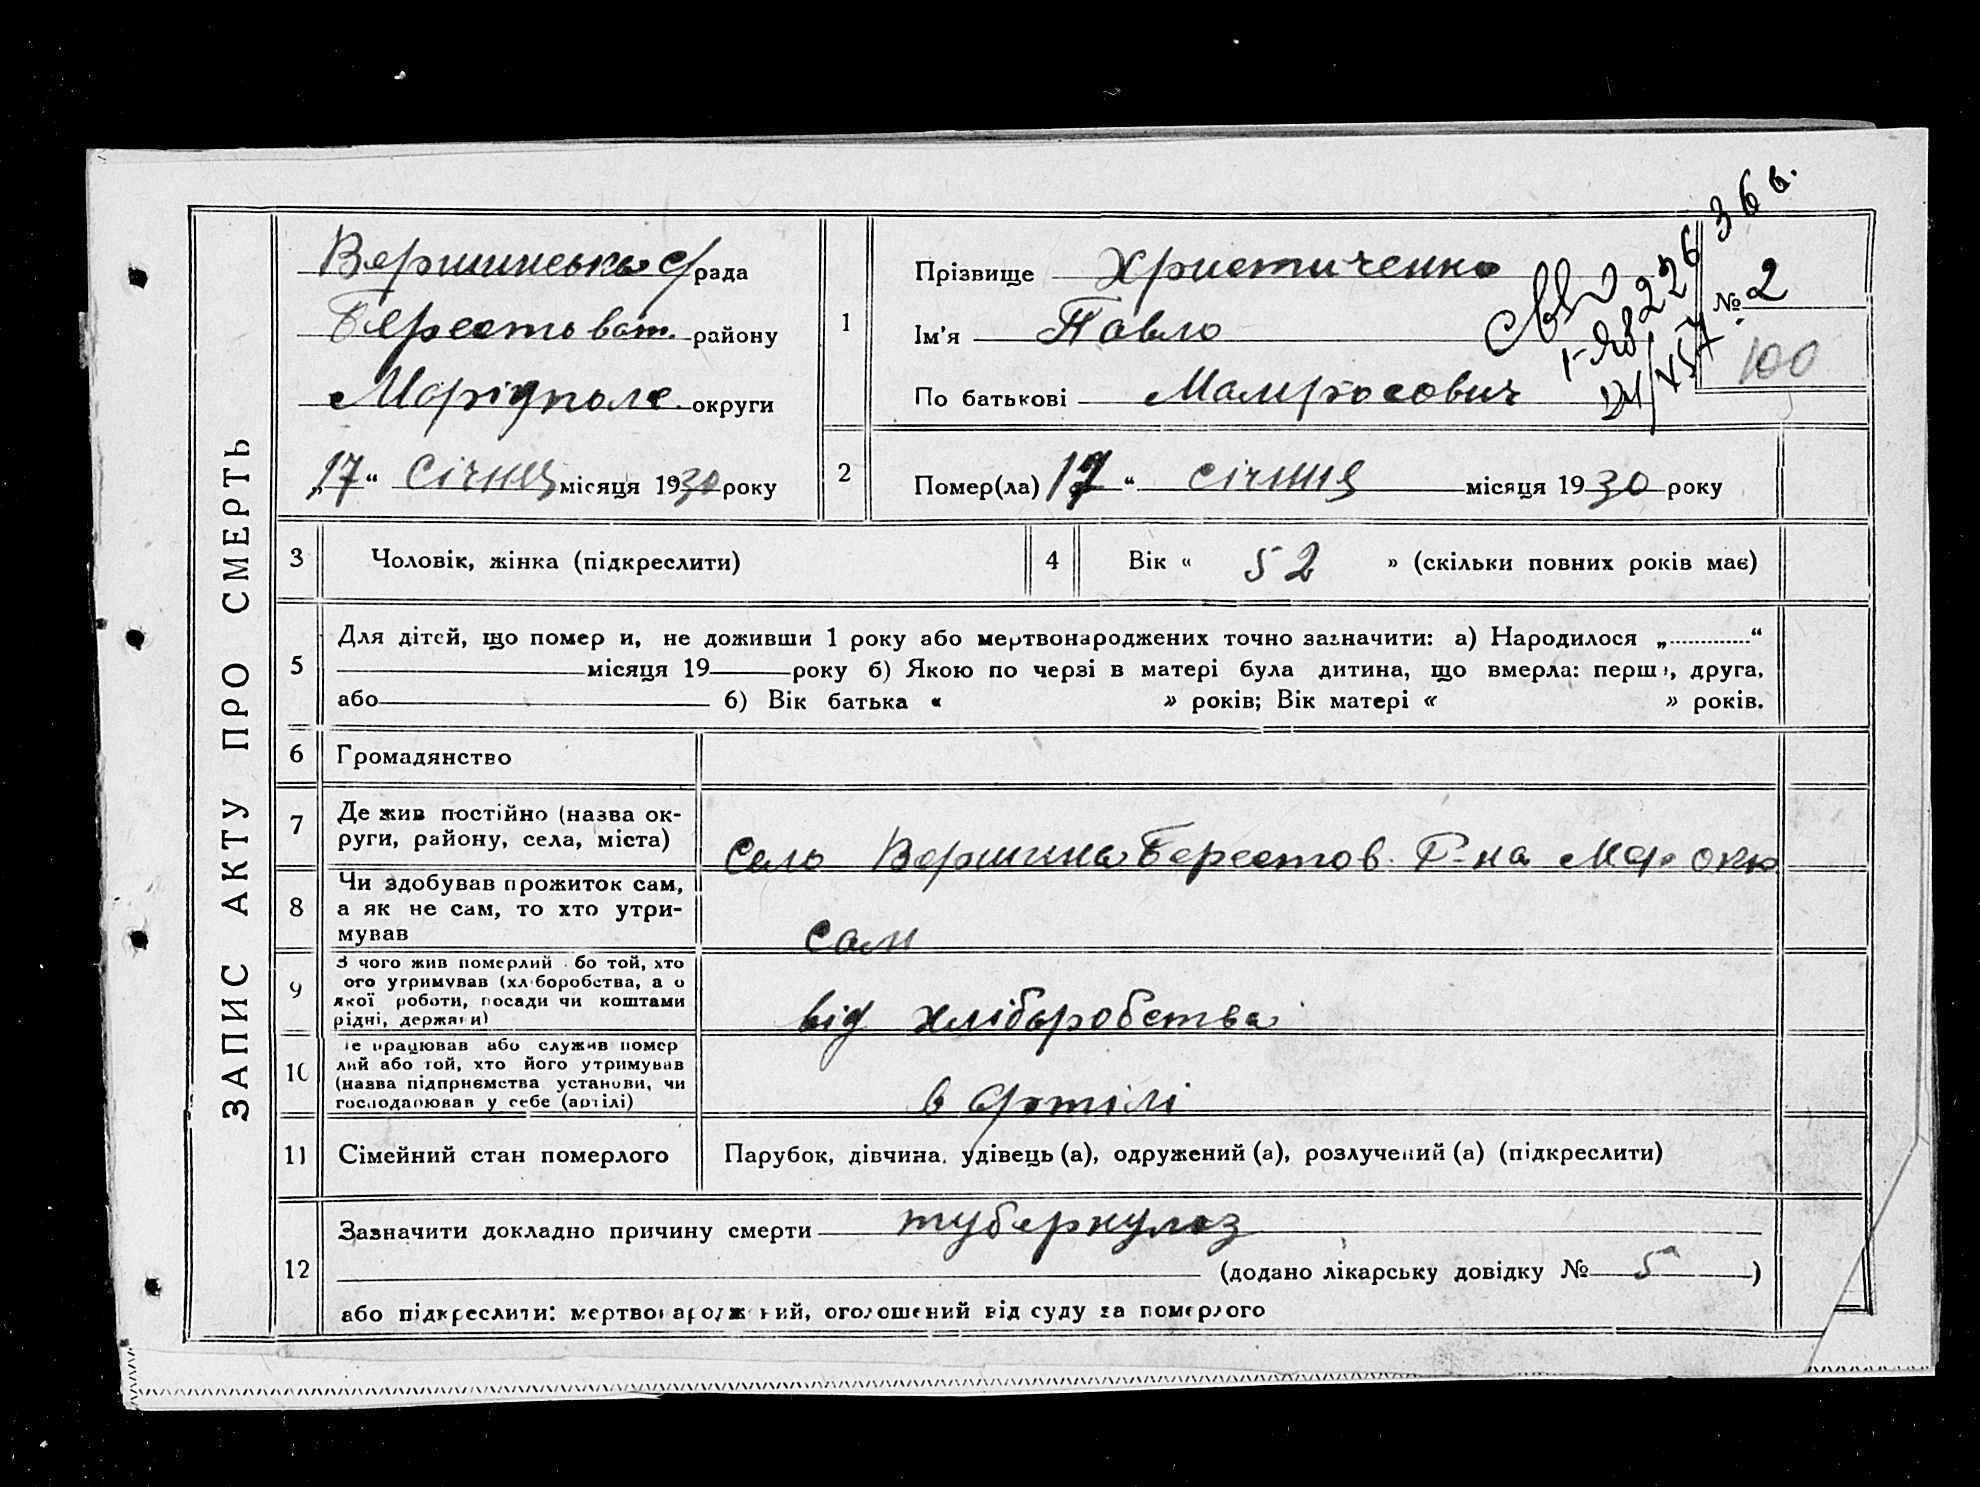 ЗАПИС АКТУ ПРО СМЕРТЬ
Вершинська с/рада
Берестоват. району
Маріупольс. округи
„17“ Січня місяця 1930 року
36 в.
№ 2
100
1 Прізвище Христиченко
Ім'я Павло
По батькові Мамросович
2 Помер(ла) 17 “ січння місяця 1930 року
3 Чоловік, жінка (підкреслити)
4 Вік « 52 » (скільки повних років має)
5 Для дітей, що помер и, не доживши 1 року або мертвонароджених точно зазначити: а) Народилося „............“
місяця 19 року б) Якою по черзі в матері була дитина, що вмерла: перша, друга,
або б) Вік батька « » років; Вік матері « » років.
6 Громадянство
7 Де жив постійно (назва ок-
руги, району, села, міста)
Село Вершина Берестов. Р-на Мар окр
8 Чи здобував прожиток сам,
а як не сам, то хто утри-
мував
сам
9 З чого жив померлий бо той, хто
ого утримував (хліборобства, а о
якої роботи, посади чи коштами
рідні, держави)
від хліборобства
10 е працював або служив помер
лий або той, хто його утримував
(назва підприємства установи, чи
господарював у себе (артілі)
в артілі
11 Сімейний стан померлого
Парубок, дівчина, удівець (а), одружений (а), розлучений (а) (підкреслити)
12 Зазначити докладно причину смерти туберкульоз
(додано лікарську довідку № 5 )
або підкреслити: мертвонароджений, оголошений від суду за померлого